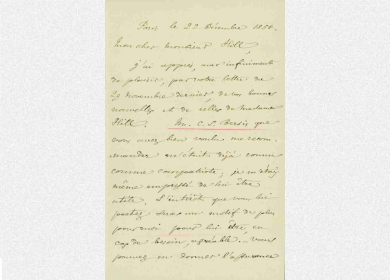 Paris le 22 Décembre 1880.
Mon cher Monsieur Hill,
J'ai appris, avec infiniment
de plaisir, par votre lettre de
29 novembre dernier, de vos bonnes
nouvelles et de celles de Madame
Hill. Mr. C. S. que
vous avez bien voulu me recom-
mander m'était déjà connu
comme compatriote; je m'étais
même empressé de lui être
utile. L'intérêt que vous lui
portez sera un motif de plus
pour moi pour lui être, en
cas de besoin, agréable. Vous
pouvez en donner l'assurance